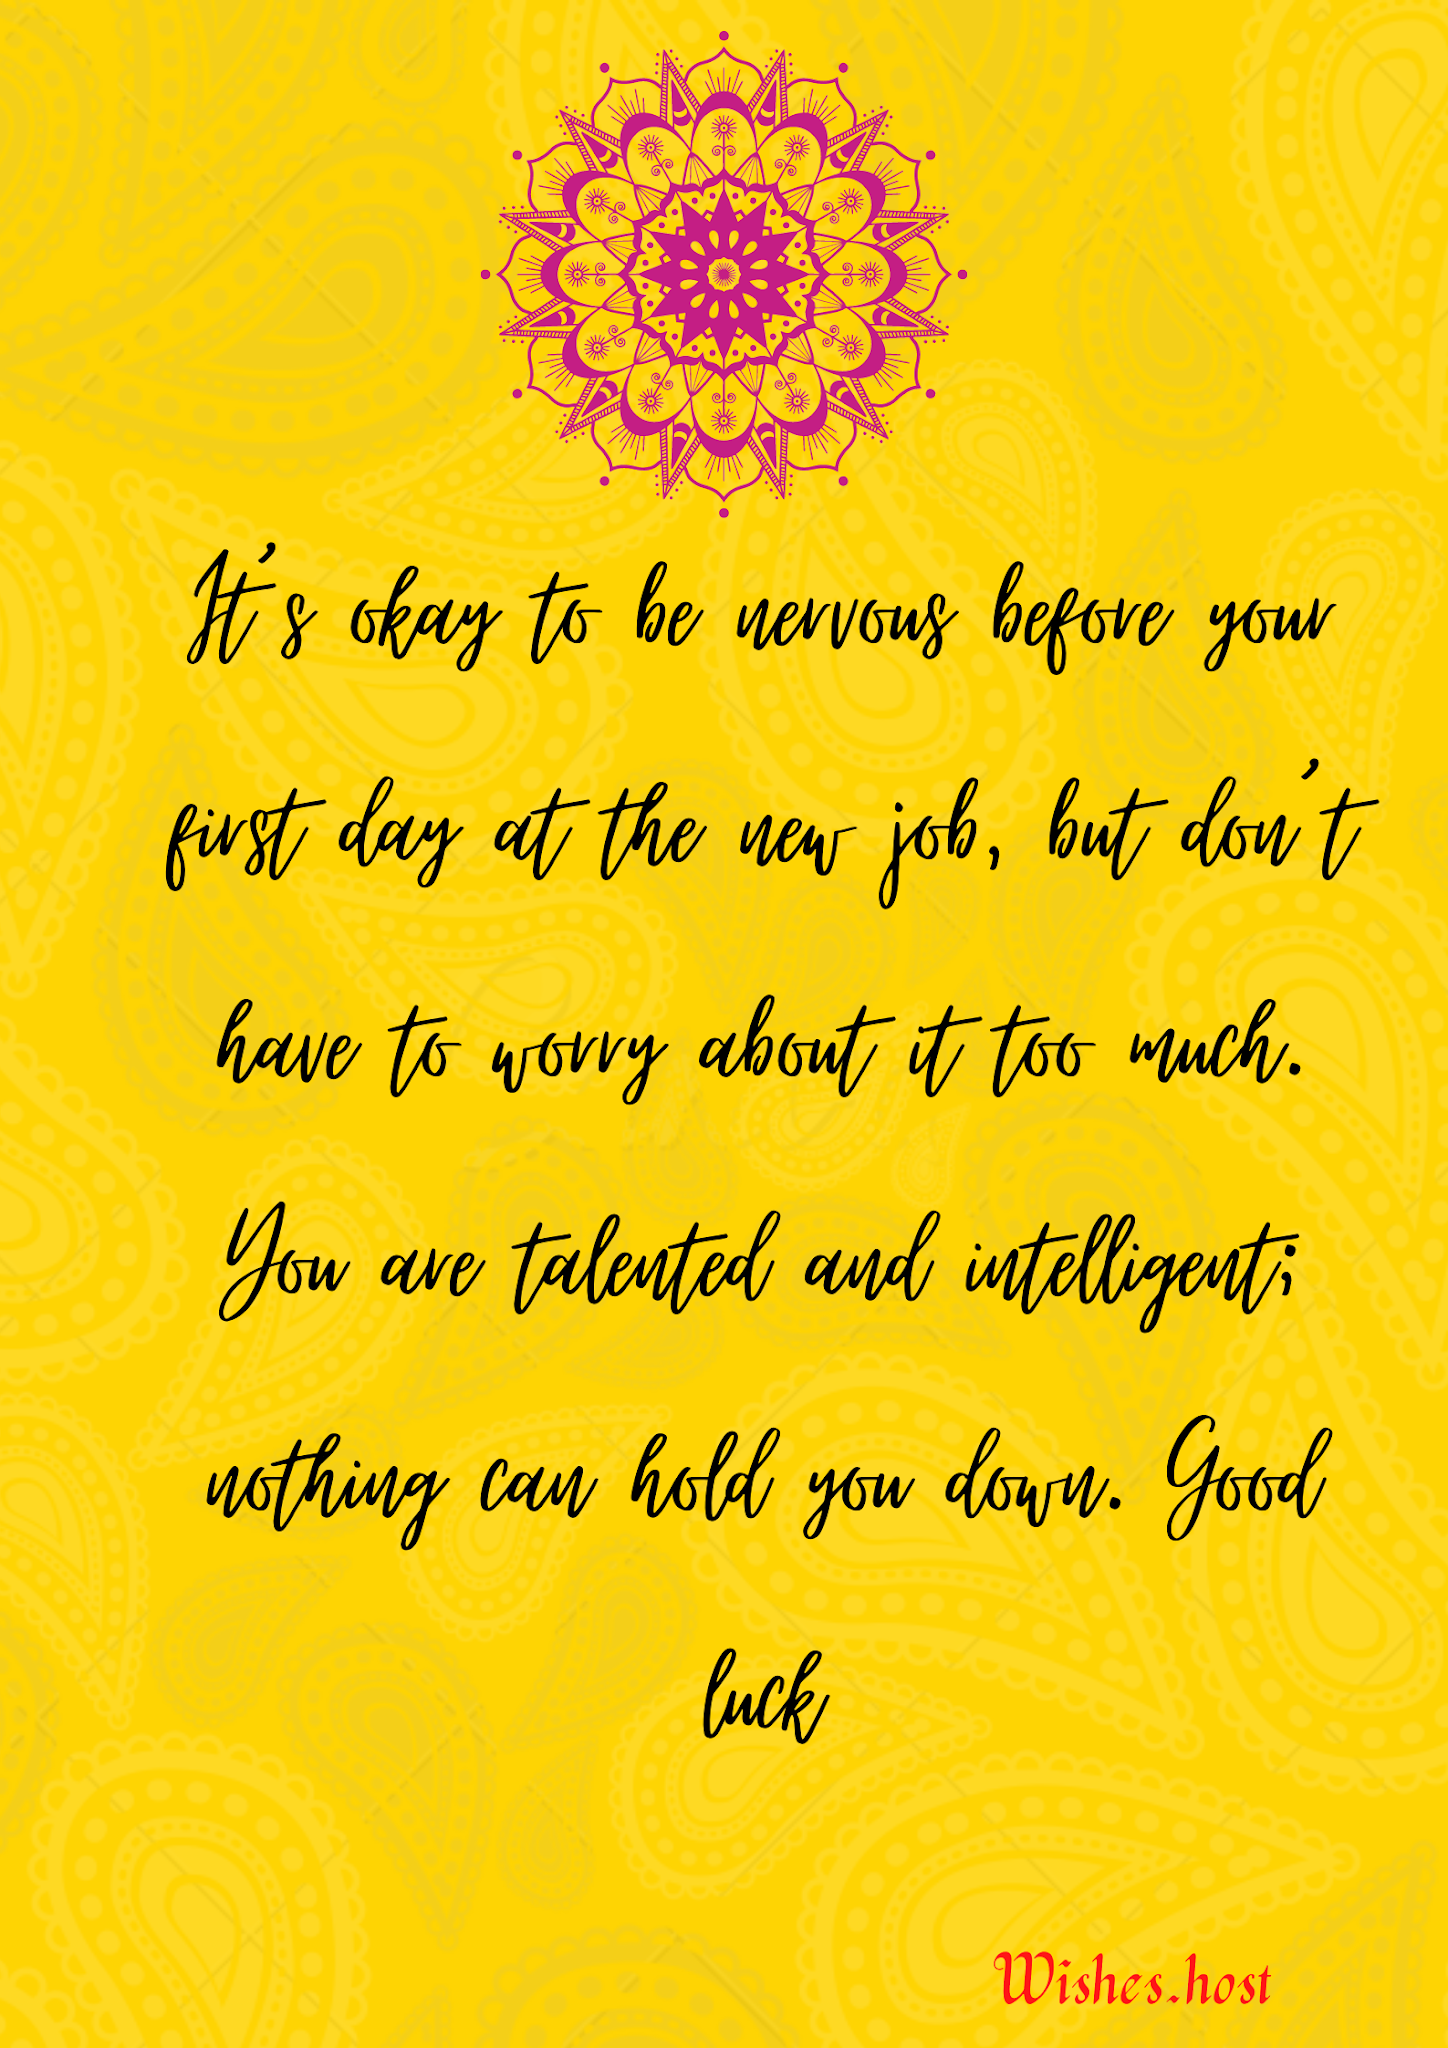 It's okay to be nervous before your
first day at the new job, but don't
have to worry about it too much.
You are talented and intelligent;
nothing can hold you down. Good
luck
Wishes.host